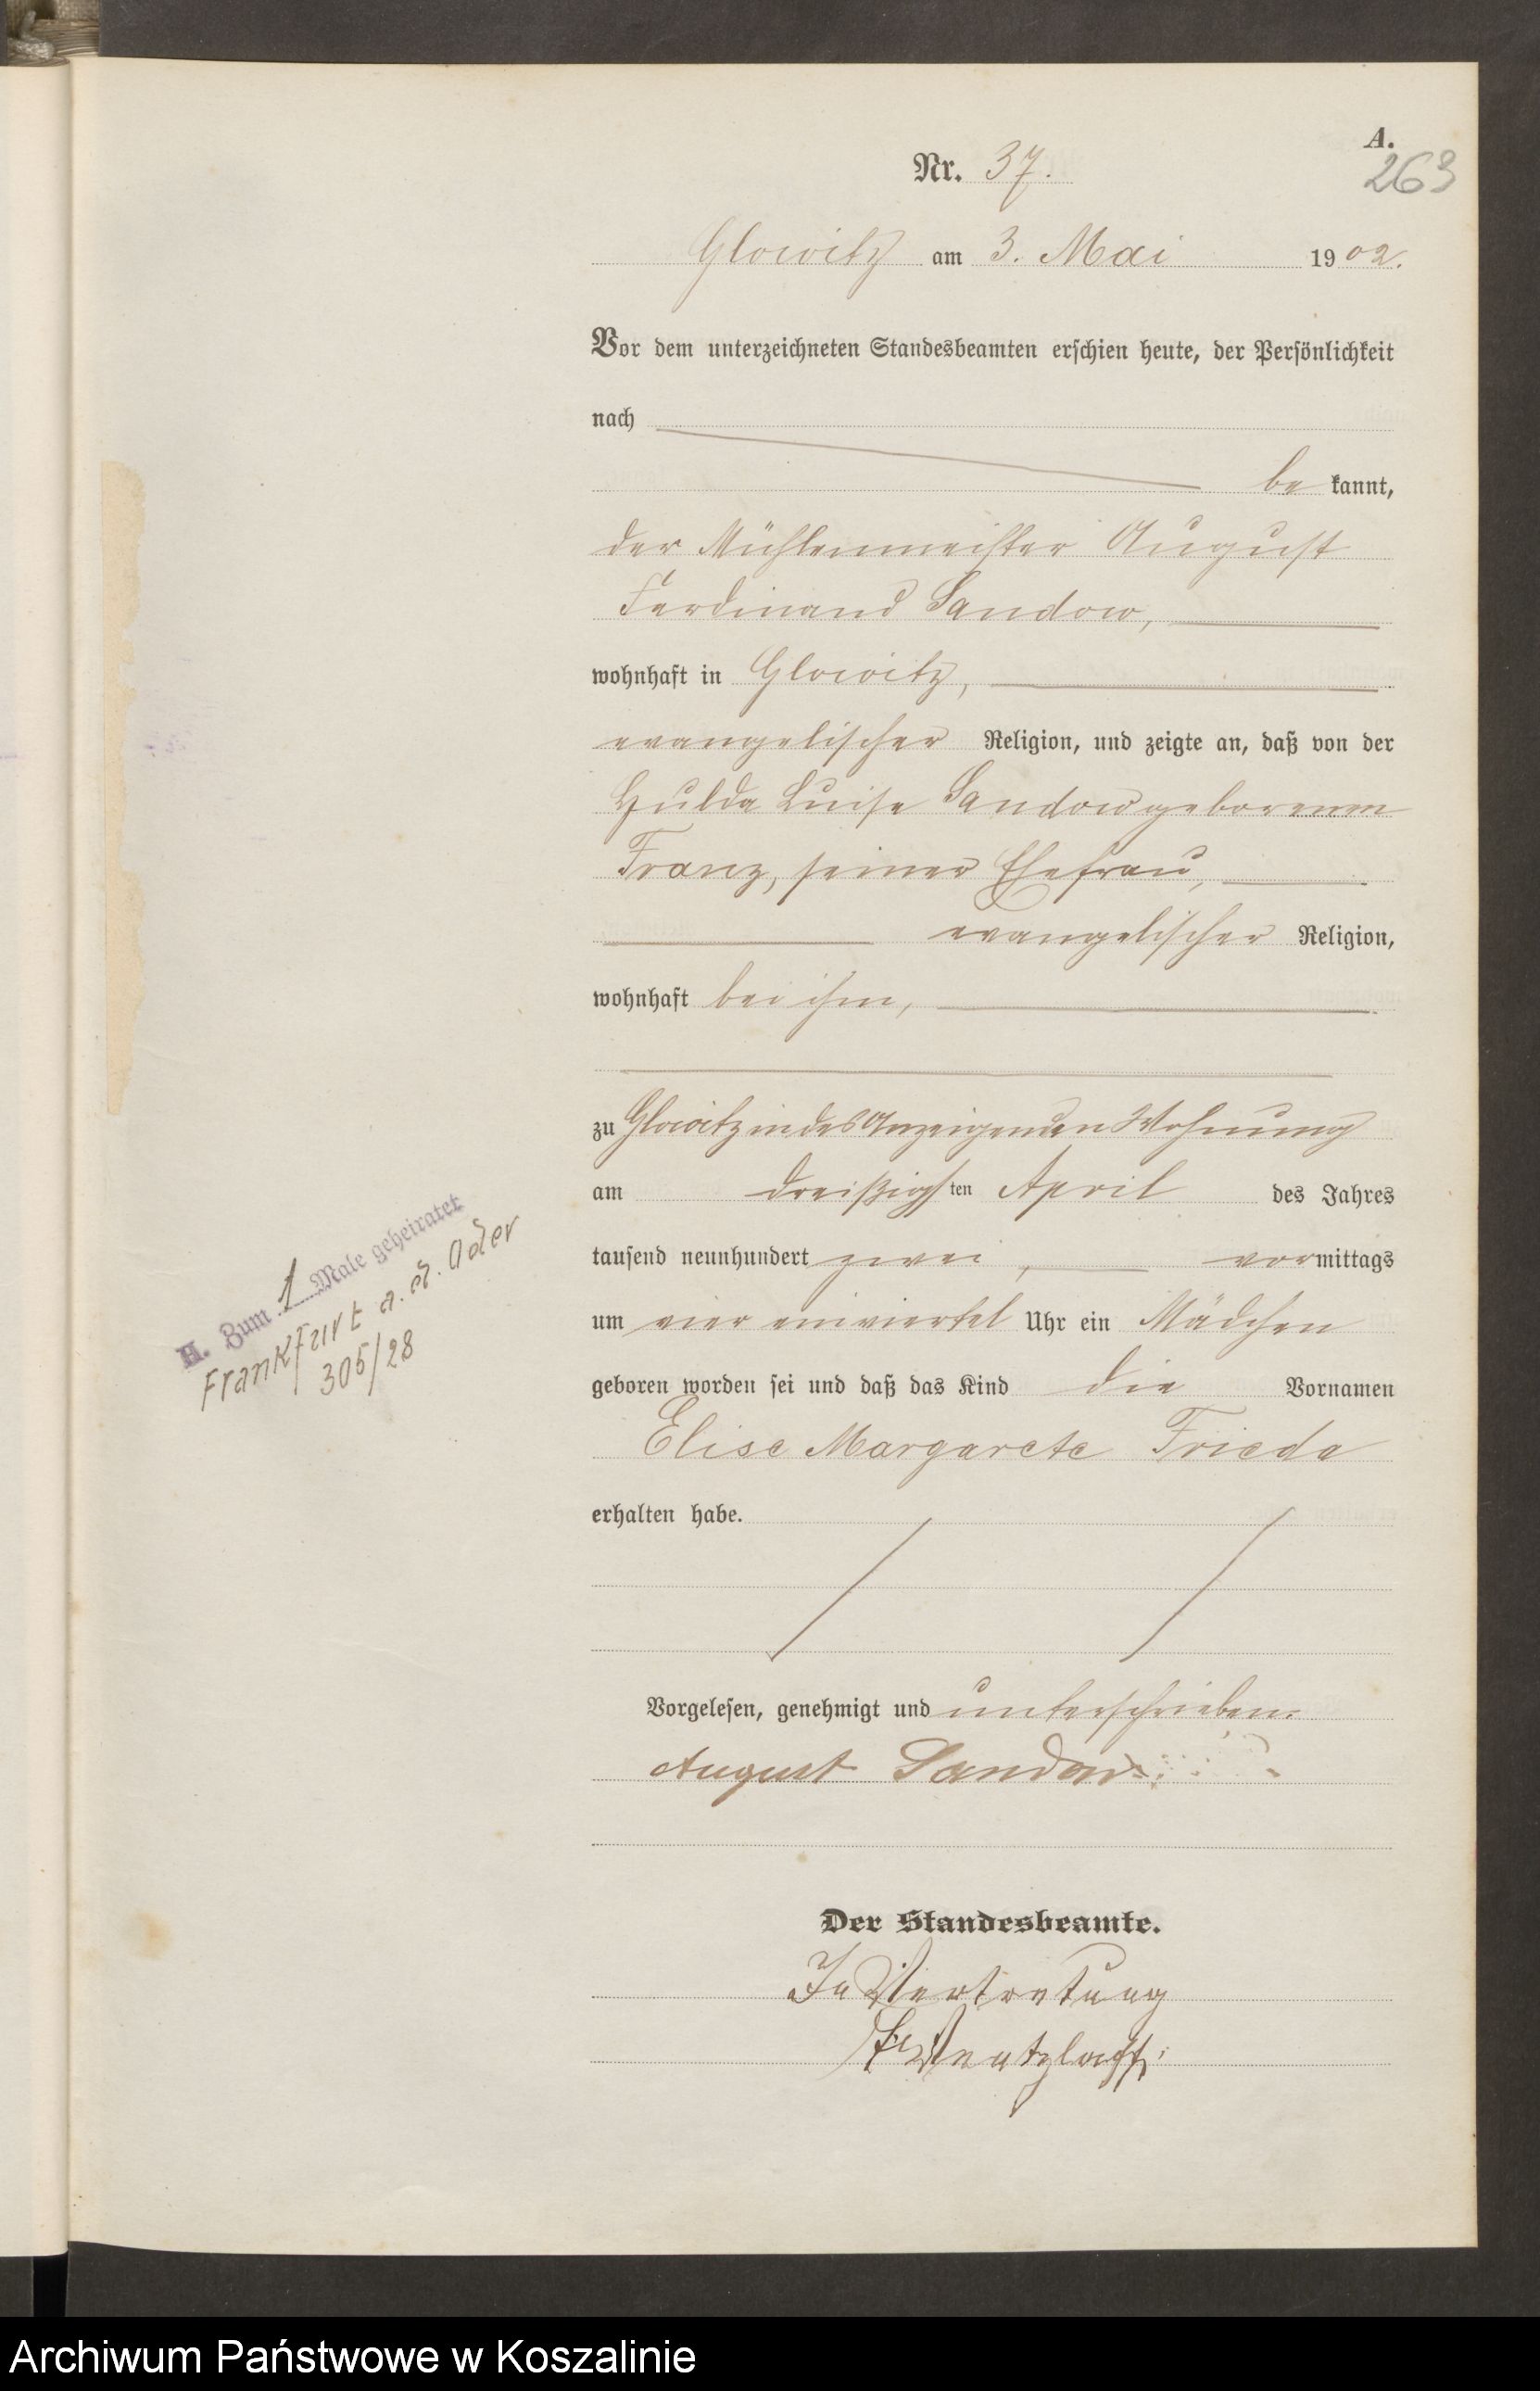 A.
263
Nr. 37.
Glowitz am 3. Mai 1902.
Vor dem unterzeichneten Standesbeamten erschien heute, der Persönlichkeit
nach
be kannt,
der Mühlenmeister August
Ferdinand Sandow,
wohnhaft in Glowitz,
evangelischer Religion, und zeigte an, daß von der
Hulda Luise Sandow geborenen
Franz, seiner Ehefrau,
evangelischer Religion,
wohnhaft bei ihm,
zu Glowitz in des Anzeigenden Wohnung
am dreißigsten April des Jahres
tausend neunhundert zwei, vormittags
um vier einviertel Uhr ein Mädchen
geboren worden sei und daß das Kind die Vornamen
Elise Margarete Frieda
erhalten habe.
H. Zum 1 Male geheiratet
Frankfurt a. d. Oder
305/28
Vorgelesen, genehmigt und unterschrieben.
August Sandow
Der Standesbeamte.
In Vertretung
Wentzlaff.
Archiwum Państwowe w Koszalinie